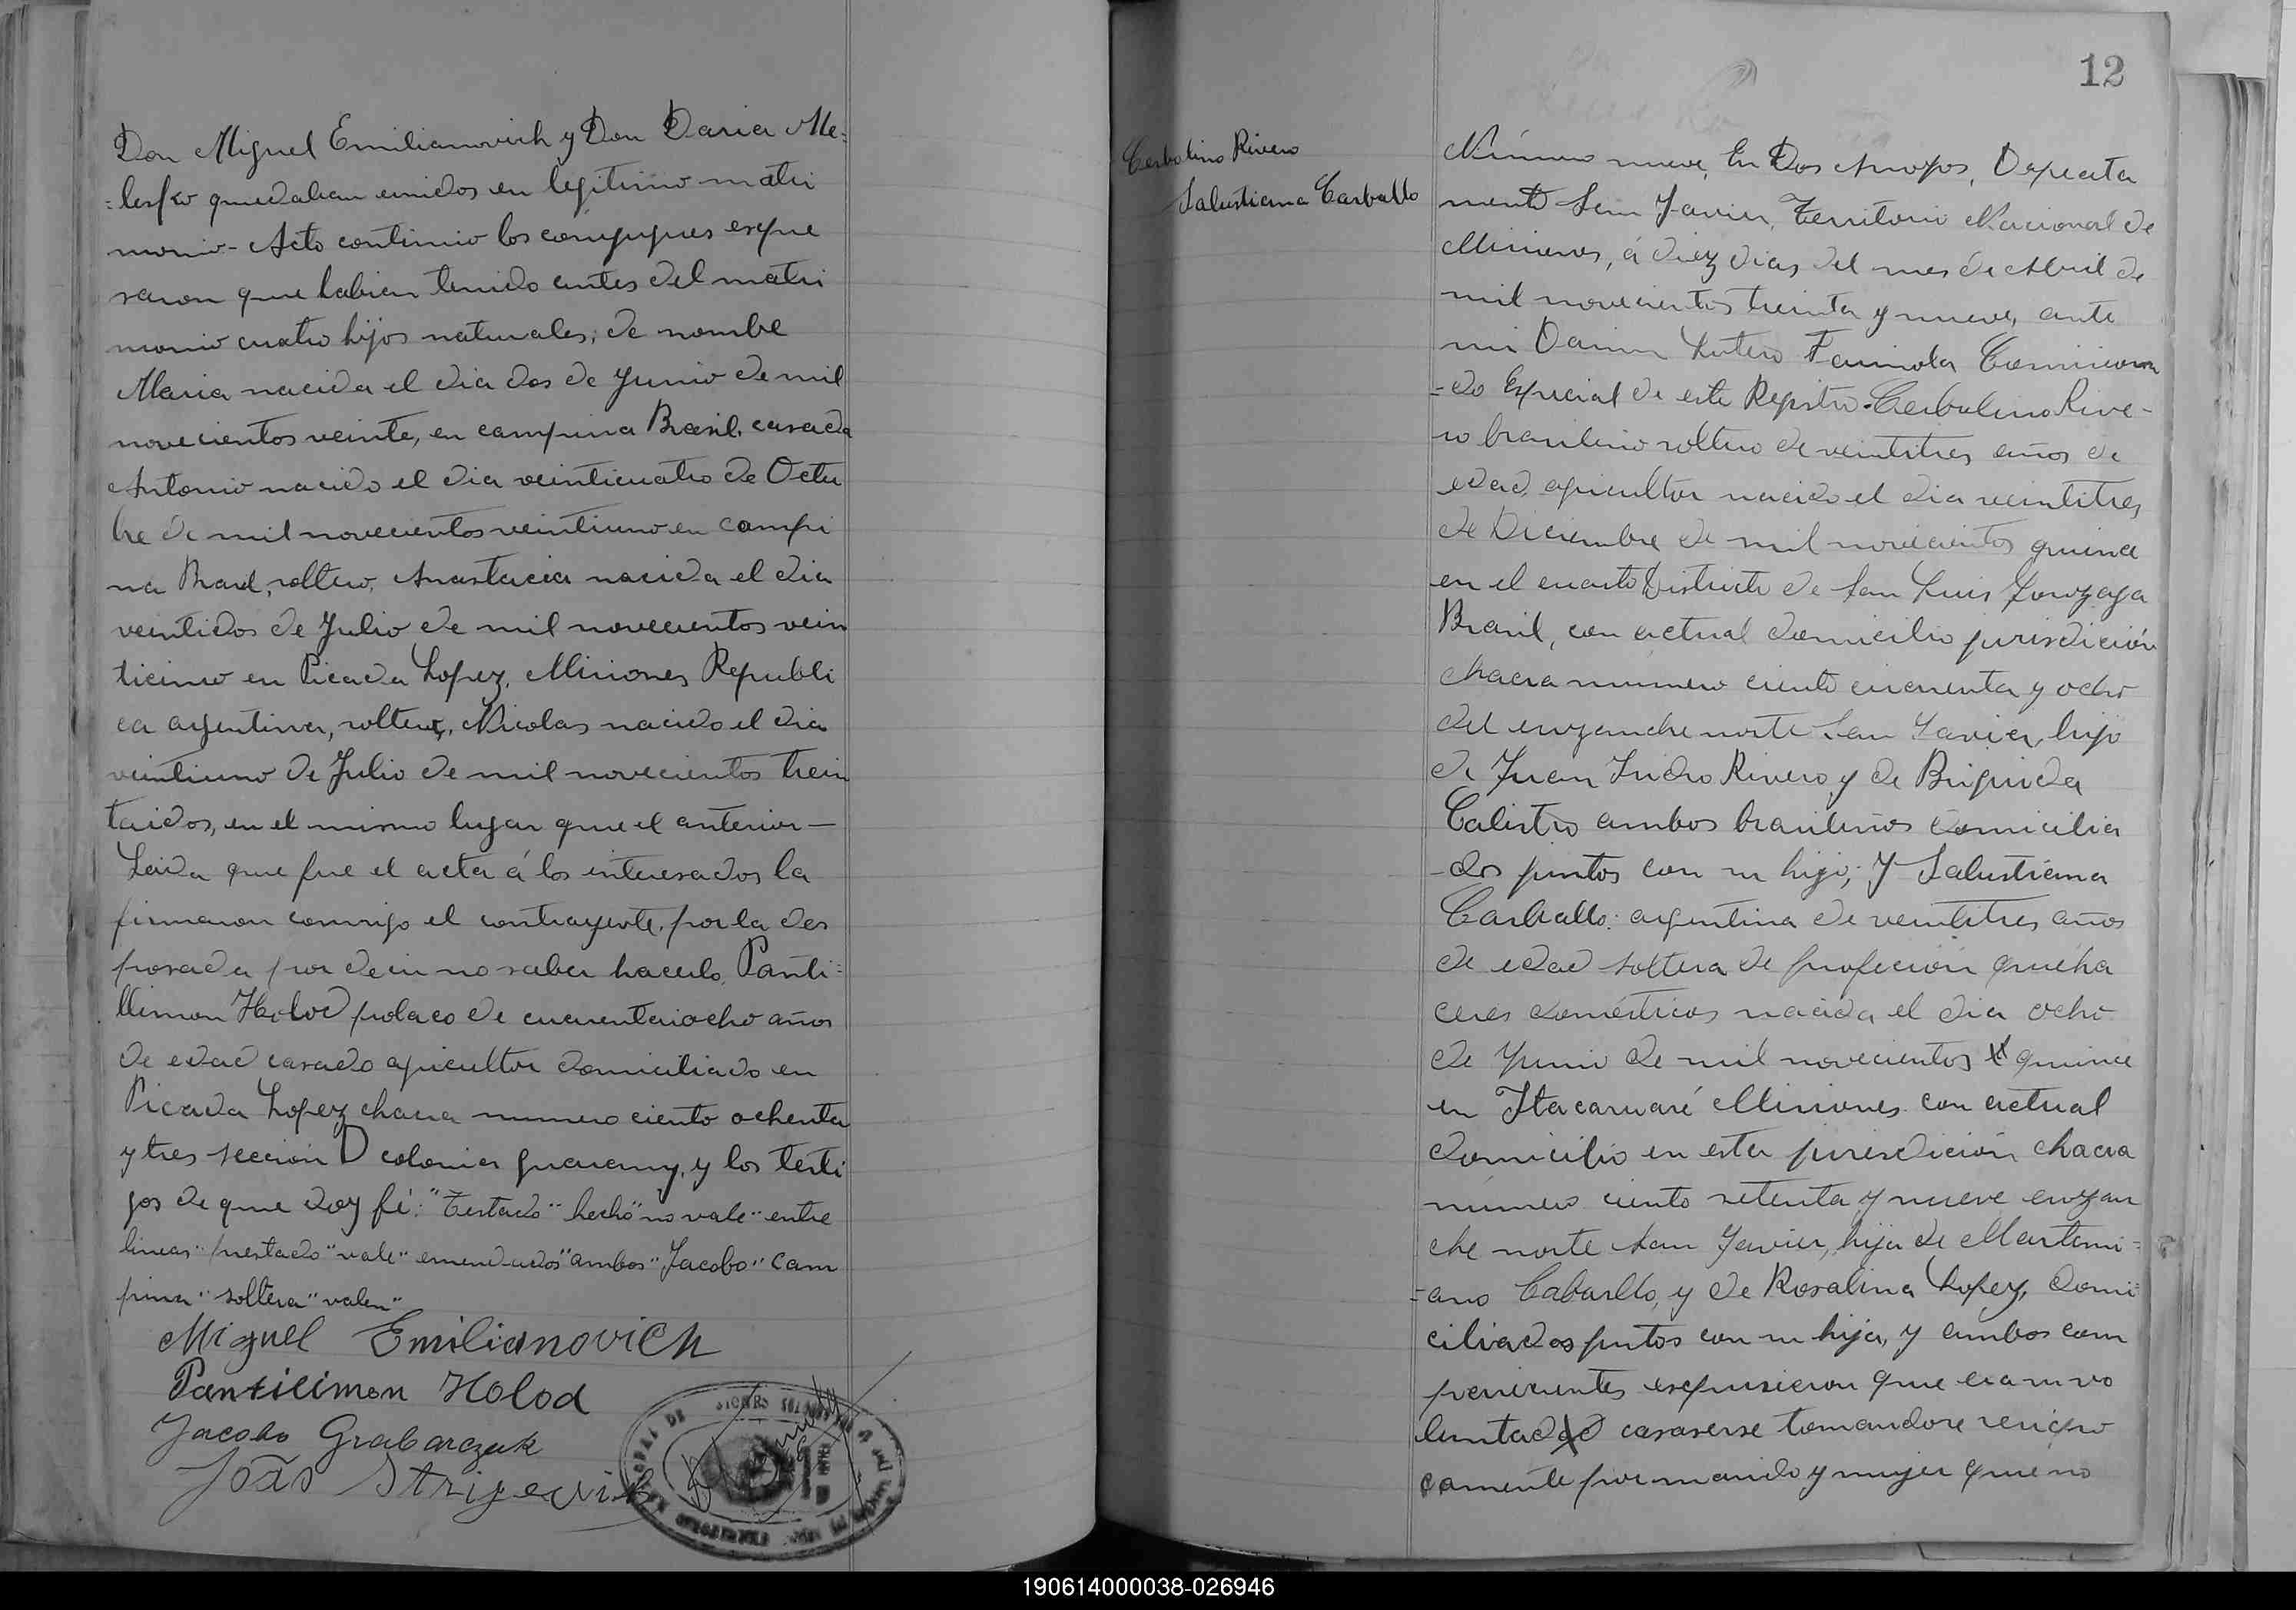 Don Miguel Emilianovich y Don Daria Me=
=lesko quedaban unidos en legitimo matri
monio - Acto continuo los conyugues expre
saron que habian tenido antes del matri
monio cuatro hijos naturales; de nombre
Maria nacida el dia dos de Junio de mil
novecientos veinte, en campina Brasil, casada
Antonio nacido el dia veinticuatro de Octu
bre de mil novecientos veintiuno en campi
na Brasil, soltero, Anastacia nacida el dia
veintidos de Julio de mil novecientos vein
ticinco en Picada Lopez, Misiones Republi
ca argentina, soltera, Nicolas nacido el dia
veintiuno de Julio de mil novecientos trein
taidos, en el mismo lugar que el anterior—
Leida que fue el acta á los interesados la
firmaron conmigo el contrayente, por la des
posada por decir no saber hacerlo, Panti=
llimon Holod polaco de cuarentaiocho años
de edad casado agricultor domiciliado en
Picada Lopez chacra numero ciento ochenta
y tres seccion D colonia guarany, y los testi
gos de que doy fé: "Testado" hecho" no vale" entre
lineas" prestado "vale" emendados" ambos" Jacobo" Cam
pina" soltera" valen"
Miguel Emilianovich
Pantilimon Holod
Jacobo Grabarczuk
João
12
Cerbolino Rivero
Salustiana Carballo
Número nueve, En Dos Arroyos, Departa
mento San Javier, Territorio Nacional de
Misiones, á diez dias del mes de Abril de
mil novecientos treinta y nueve, ante
mi Lutero Comisiona
=do Especial de este Registro. Cerbulino Rive-
ro brasilero soltero de veintitres años de
edad, agricultor nacido el dia veintitres
de Diciembre de mil novecientos quince
en el cuarto Districto de San Luis Gonzaga
Brasil, con actual domicilio jurisdición
chacra numero ciento cincuenta y ocho
del enzanche norte San Javier, hijo
de Juan Isidro Rivero y de Brigida
Calistro ambos brasileños domicilia
-dos juntos con su hijo; Y Salustiana
Carballo: argentina de veintitres años
de edad soltera de profecion queha
ceres domésticos nacida el dia ocho
de Junio de mil novecientos quince
en Itacaruaré Misiones con actual
domicilio en esta jurisdición chacra
número ciento setenta y nueve enzan
che norte San Javier, hija de Martimi=
=ano Caballo, y de Rosalina Lopez, domi
ciliados juntos con su hija, y ambos com
parecientes expusieron que era su vo
luntad casarse tomandose recipro
camente por marido y mujer que no
190614000038-026946